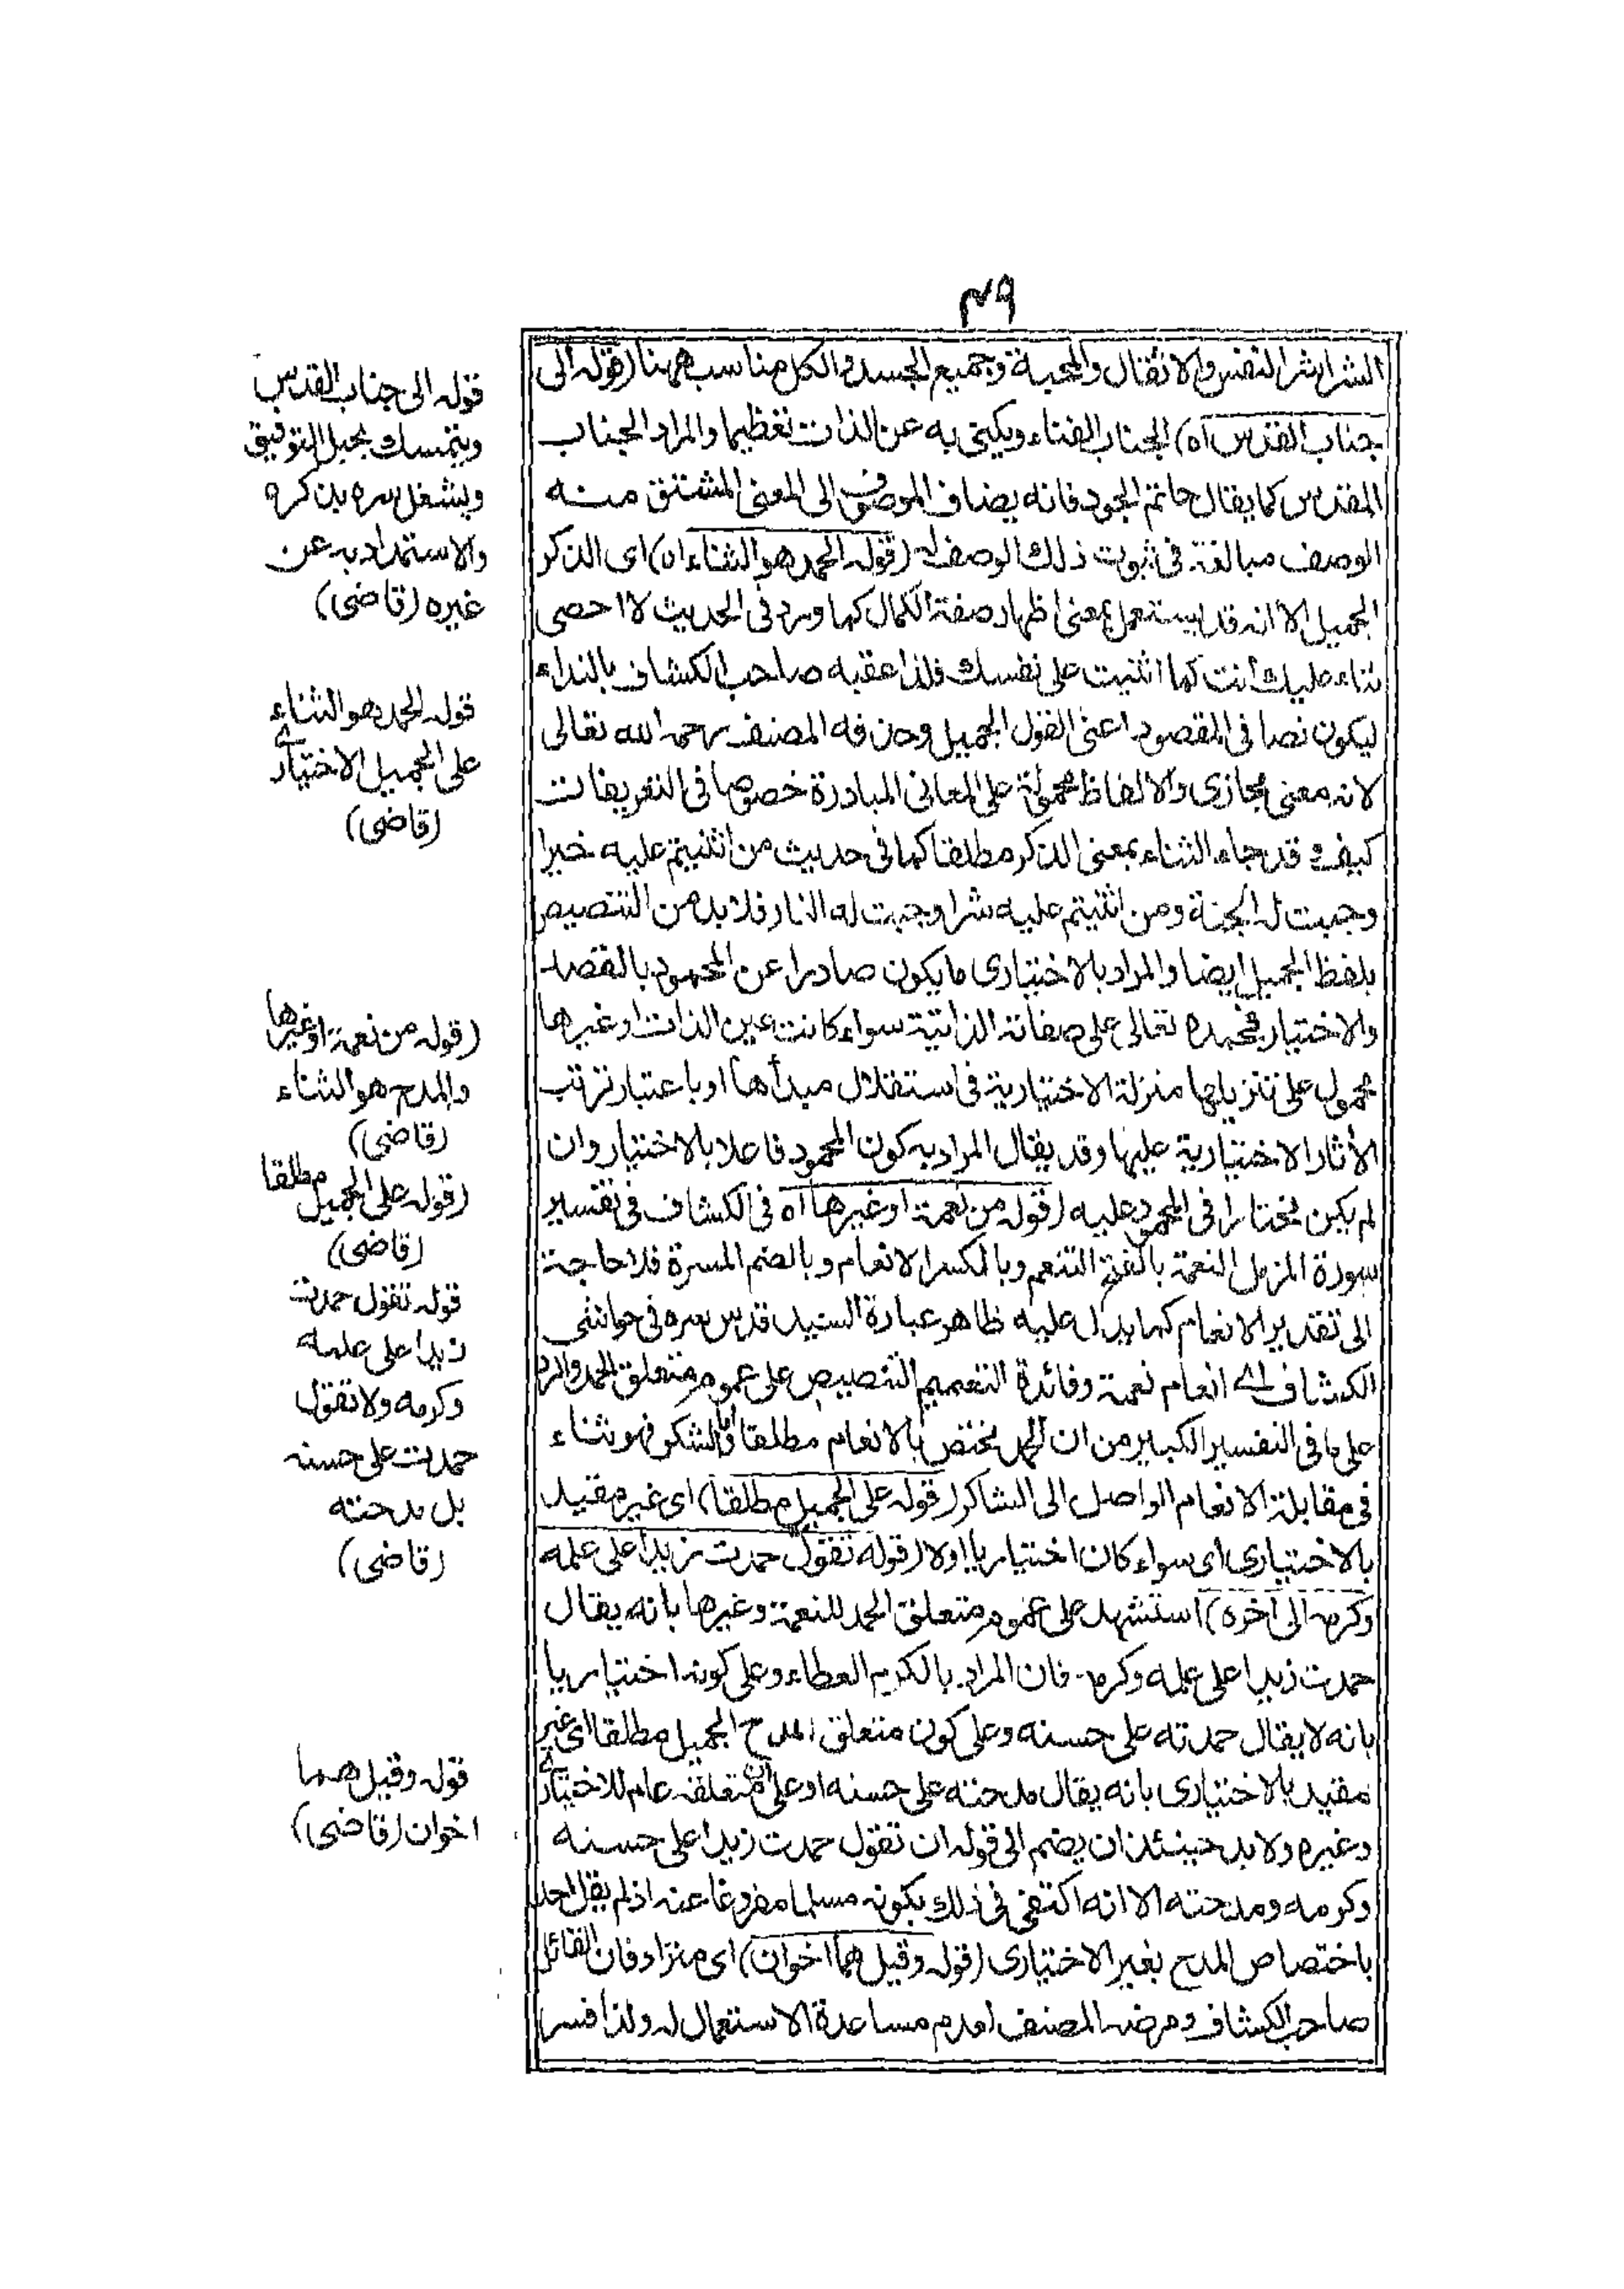 ٤٩
الشراشر النفس والاثقال والمحبة وجميع الجسد والكل مناسب ههنا (قوله الى
جناب القدس اه) الجناب الفناء ويكنى به عن الذات تعظيما والمراد الجناب
المقدس كما يقال حاتم الجود فانه يضاف الموصوف الى المعنى المشتق منه
الوصف مبالغة فى ثبوت ذلك الوصف له (قوله الحمد هو الثناء اه) اى الذكر
الجميل الا انه قد يستعمل بمعنى اظهار صفة الكمال كما ورد فى الحديث لا احصى
ثناء عليك انت كما اثنيت على نفسك فلذا عقبه صاحب الكشاف بالنداء
ليكون نصا فى المقصود اعنى القول الجميل وحذفه المصنف رحمه الله تعالى
لانه معنى مجازى والالفاظ محمولة على المعانى المبادرة خصوصا فى التعريفات
كيف و قد جاء الثناء بمعنى الذكر مطلقا كما فى حديث من اثنيتم عليه خيرا
وجبت له الجنة ومن اثنيتم عليه شرا وجبت له النار فلا بد من التنصيص
بلفظ الجميل ايضا والمراد بالاختيارى ما يكون صادرا عن المحمود بالقصد
والاختيار فحمده تعالى على صفاته الذاتية سواء كانت عين الذات او غيرها
محمول على تنزيلها منزلة الاختيارية فى استقلال مبدأها او باعتبار ترتب
الأثار الاختيارية عليها وقد يقال المراد به كون المحمود فاعلا بالاختيار وان
لم يكن مختارا فى المحمود عليه (قوله من نعمة او غيرها اه فى الكشاف فى تفسير
سورة المزمل النعمة بالفتح التنعم وبالكسر الانعام وبالضم المسرة فلا حاجة
الى تقدير الانعام كما يدل عليه ظاهر عبارة السيد قدس سره فى حواشى
الكشاف اے انعام نعمة وفائدة التعميم التنصيص على عموم متعلق الحمد والرد
على ما فى التفسير الكبير من ان الحمد يختص بالانعام مطلقا واما الشكر فهو ثناء
فى مقابلة الانعام الواصل الى الشاكر (قوله على الجميل مطلقا) اى غير مقيد
بالاختيارى اى سواء كان اختياريا اولا (قوله تقول حمدت زيدا على علمه
وكرمه الى اخره) استشهد على عموم متعلق الحمد للنعمة وغيرها بانه يقال
حمدت زيدا على علمه وكرمه فان المراد بالكرم العطاء وعلى كونه اختياريا
بانه لا يقال حمدته على حسنه وعلى كون متعلق المدح الجميل مطلقا اى غير
مقيد بالاختيارى بانه يقال مدحته على حسنه او على ان متعلقه عام للاختيارے
وغيره ولا بد حينئذ ان يضم الى قوله ان تقول حمدت زيدا على حسنه
وكرمه ومدحته الا انه اكتفى فى ذلك بكونه مسلما مفروغا عنه اذ لم يقل احد
باختصاص المدح بغير الاختيارى (قوله وقيل هما اخوان) اى مترادفان القائل
صاحب الكشاف ومرضه المصنف لعدم مساعدة الاستعمال له ولذا فسر
قوله الى جناب القدس
ويتمسك بحبل التوفيق
ويشغل سره بذكره
والاستمداد به عن
غيره (قاضى)
قوله الحمد هو الثناء
على الجميل الاختيارے
(قاضى)
(قوله من نعمة اوغيرها
والمدح هو الثناء
(قاضى)
(قوله على الجميل مطلقا
(قاضى)
قوله تقول حمدت
زيدا على علمه
وكرمه ولا تقول
حمدت على حسنه
بل مدحته
(قاضى)
قوله وقيل هما
اخوان (قاضى)